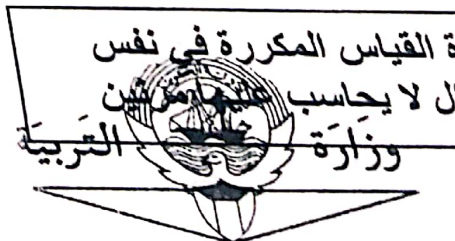 ة القياس المكررة في نفس
ل لا يحاسب عليها مرتين
وزارة التربية